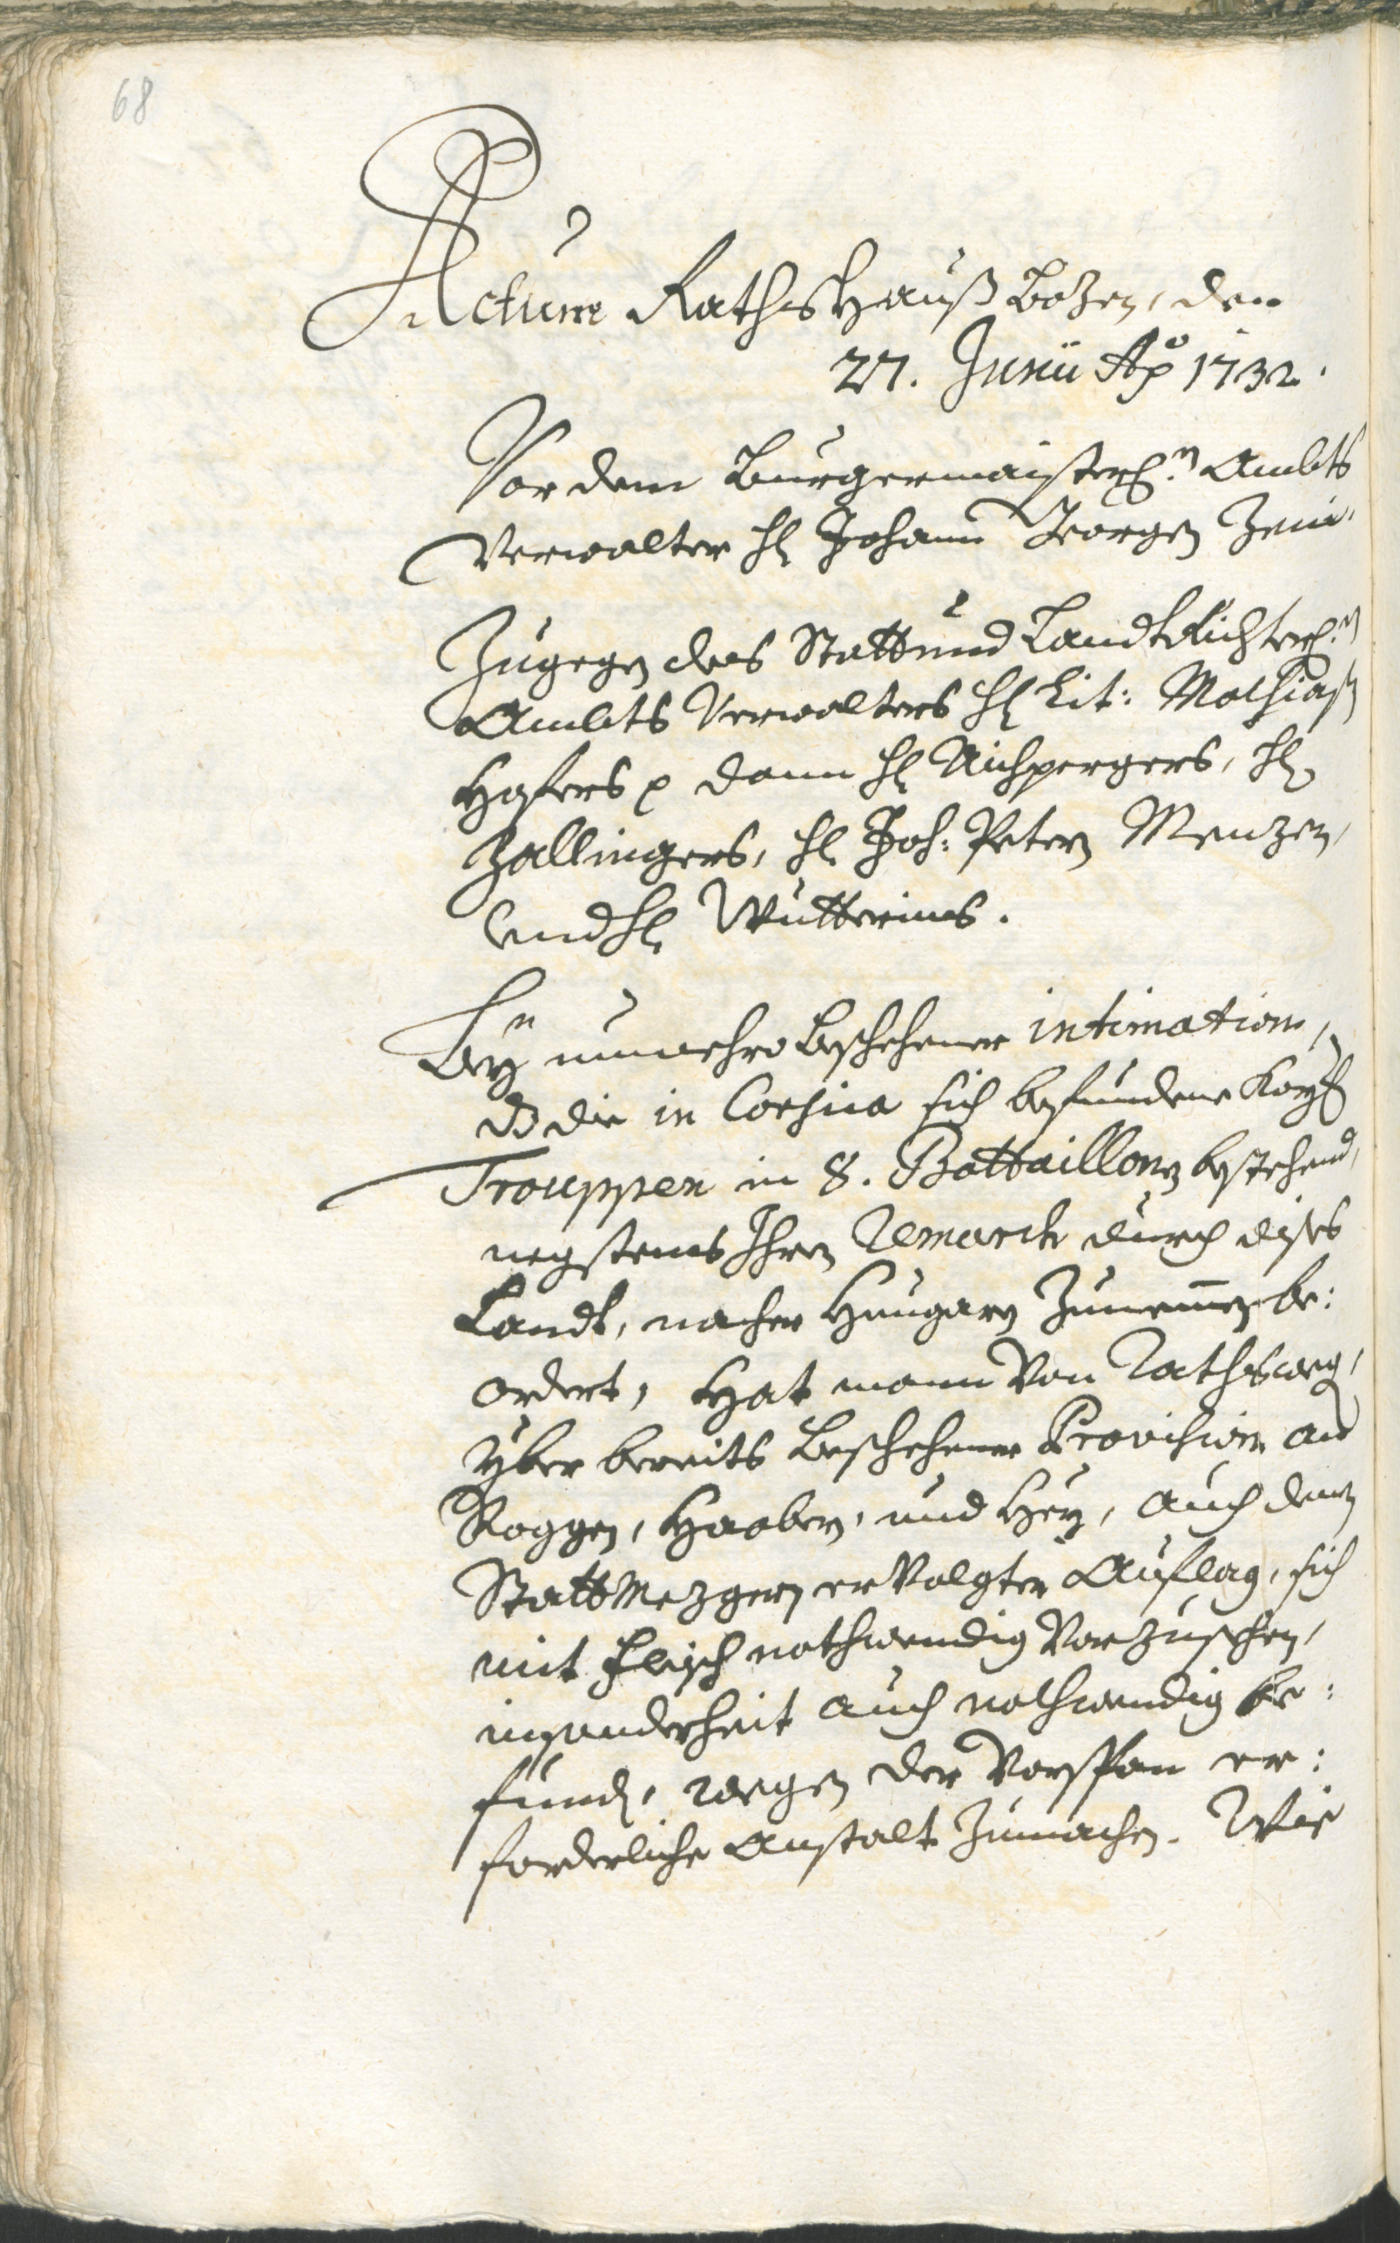 68
Actum RathsHauß Bozen, den
27. Junii Aõ 1732.
Vor dem Burgermaisterl:n Ambts
Verwalter H: Johann Georgen Zeni.
Zugegen des Statt und LandtRichterl:n
Ambts Verwalters H: Lit: Mathiaß
Hofers p dann H: Aichpergers, H:
Zallingers, H: Joh: Peter Menzen,
und H: Wutterins.
Bey nunmehro beschehener intimation,
dz die in Corsica sich befundene Kays:
Trouppen in 8. Battaillonen bestehend,
negstens Ihren Remarch durch dises
Landt, nacher Hungarn zunemmen be:
ordert, Hat mann von Rathswegen,
yber bereits beschehene Provision an
Roggen, Haaber, und Hey, auch denen
StattMezgern ervolgter Auflag, sich
mit Fleisch nothwendig vorzusehen,
insonderheit auch nothwendig be:
funden, wegen der Vorspan er:
forderliche Anstalt zumachen. Wie